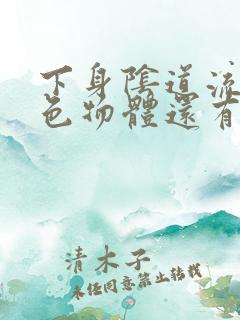 下身陰道流
色物體還有
清木子
未经同意禁止转载